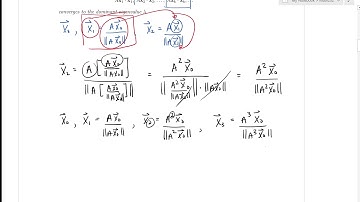 converges to the dominant eigenvalue λ
x⃗₀, x⃗₁ = Ax⃗₀ / ||Ax⃗₀|| x⃗₂ = Ax⃗₁ / ||Ax⃗₁||
x⃗₂ = A [Ax⃗₀ / ||Ax⃗₀||] / ||A [Ax⃗₀ / ||Ax⃗₀||]|| = A²x⃗₀ / (||A²x⃗₀ / ||Ax⃗₀|| || · ||Ax⃗₀||) = A²x⃗₀ / ||A²x⃗₀||
x⃗₀, x⃗₁ = Ax⃗₀ / ||Ax⃗₀||, x⃗₂ = A²x⃗₀ / ||A²x⃗₀||, x⃗₃ = A³x⃗₀ / ||A³x⃗₀||